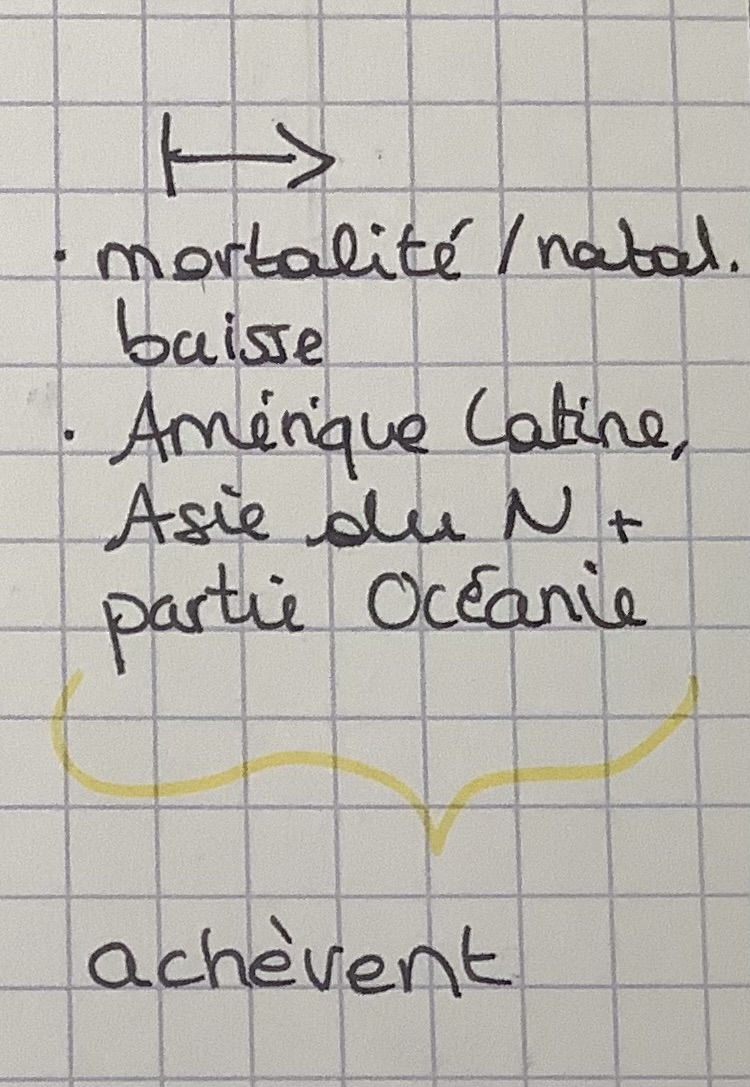 · mortalité / natal.
baisse
· Amérique latine,
Asie du N +
partie Océanie
achèvent